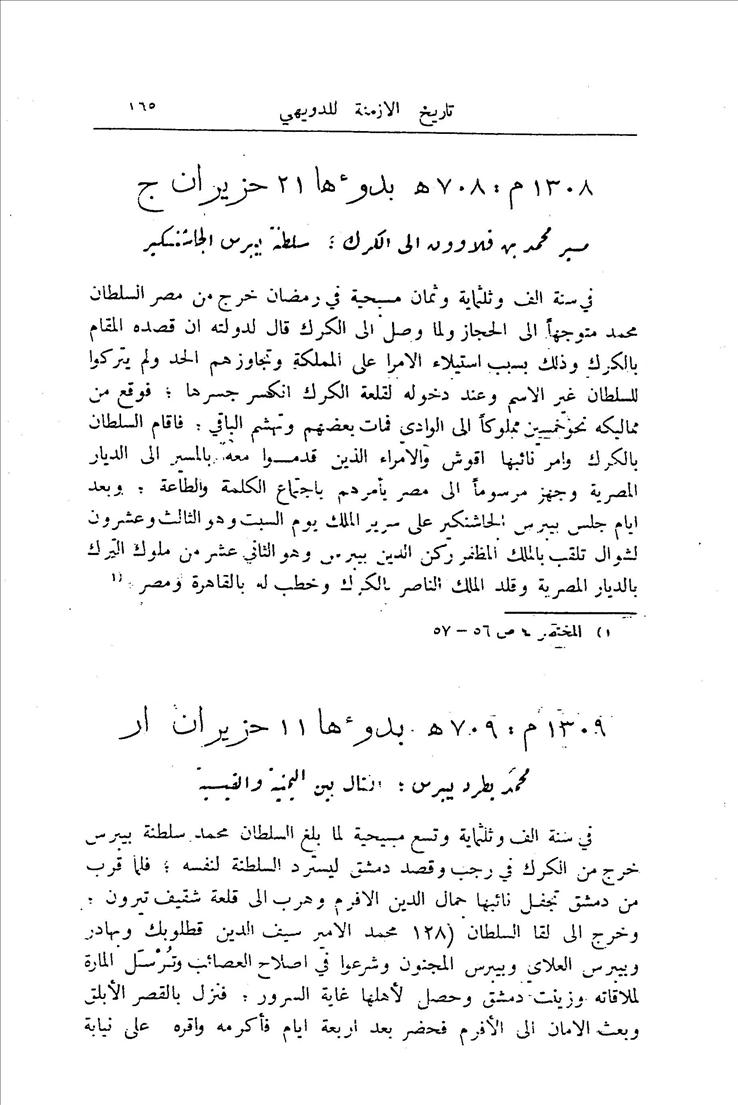 تاريخ الازمنة للدويهي ١٦٥
١٣٠٨ م : ٧٠٨ هـ بدوءها ٢١ حزيران ج
مسير محمد بن قلاوون الى الكرك ؛ سلطنة بيبرس الجاشنكير
في سنة الف وثلثماية وثمان مسيحية في رمضان خرج من مصر السلطان
محمد متوجهاً الى الحجاز ولما وصل الى الكرك قال لدولته ان قصده المقام
بالكرك وذلك بسبب استيلاء الامرا على المملكة وتجاوزهم الحد ولم يتركوا
للسلطان غير الاسم وعند دخوله لقلعة الكرك انكسر جسرها ؛ فوقع من
مماليكه نحو خمسين مملوكاً الى الوادي فمات بعضهم وتهشم الباقي ؛ فاقام السلطان
بالكرك وامر نائبها اقوش والامراء الذين قدمـوا معه بالمسير الى الديار
المصرية وجهز مرسوماً الى مصر يأمرهم باجتماع الكلمة والطاعة ؛ وبعد
ايام جلس بيبرس الجاشنكير على سرير الملك يوم السبت وهو الثالث وعشرون
لشوال تلقب بالملك المظفر ركن الدين بيبرس وهو الثاني عشر من ملوك الترك
بالديار المصرية وقلد الملك الناصر بالكرك وخطب له بالقاهرة ومصر ١)
١) المختصر ٤ ص ٥٦ – ٥٧
١٣٠٩ م : ٧٠٩ هـ بدوءها ١١ حزيران ار
محمد يطرد بيبرس ؛ القتال بين اليمنية والقيسية
في سنة الف وثلثماية وتسع مسيحية لما بلغ السلطان محمد سلطنة بيبرس
خرج من الكرك في رجب وقصد دمشق ليسترد السلطنة لنفسه ؛ فلما قرب
من دمشق تجفل نائبها جمال الدين الافرم وهرب الى قلعة شقيف تيرون ؛
وخرج الى لقا السلطان (١٢٨ محمد الامير سيف الدين قطلوبك وبهادر
وبيبرس العلاي وبيبرس المجنون وشرعوا في اصلاح العصائب وتُرْسَل المارة
لملاقاته وزينت دمشق وحصل لأهلها غاية السرور ؛ فنزل بالقصر الأبلق
وبعث الامان الى الأفرم فحضر بعد اربعة ايام فأكرمه واقره على نيابة